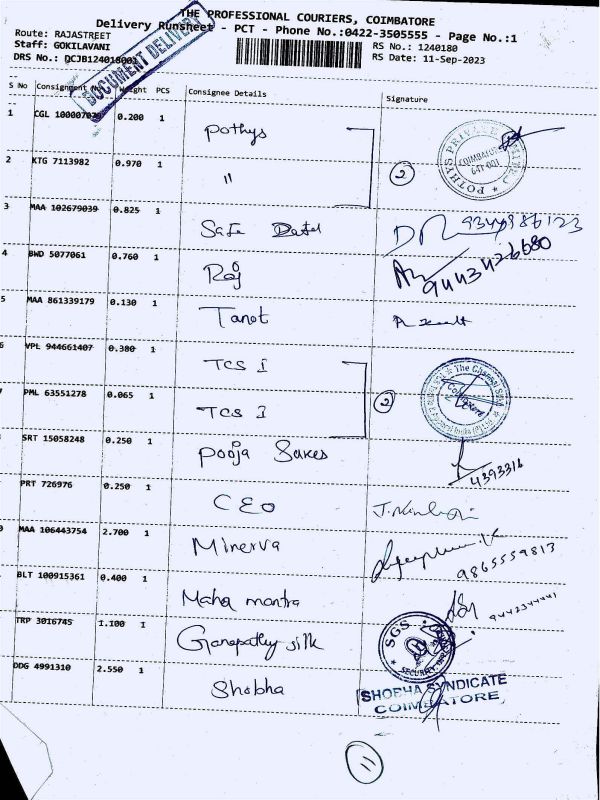 THE PROFESSIONAL COURIERS, COIMBATORE
Delivery Runsheet - PCT - Phone No.:0422-3505555 - Page No.:1
Route: RAJASTREET
Staff: GOKILAVANI
DRS No.: DCJB124018001
RS No.: 1240180
RS Date: 11-Sep-2023
DOCUMENT DELIVERY
S No Consignment No Weight PCS Consignee Details Signature
1 CGL 0.200 1 Pothys
POTHYS PRIVATE LIMITED COIMBATORE 641 001
2 KTG 7113982 0.970 1 " 2
3 MAA 102679039 0.825 1 Safe
4 BWD 5077061 0.760 1 Raj 9443426680
5 MAA 861339179 0.130 1 Tanot
6 VPL 944661407 0.380 1 TCS I
The Chennai Silks Coimbatore
PML 63551278 0.065 1 TCS I 2
SRT 15058248 0.250 1 Pooja Sarees 4393316
PRT 726976 0.250 1 CEO
MAA 106443754 2.700 1 Minerva 9865559813
BLT 100915361 0.400 1 Maha mantra
TRP 3016745 1.100 1 Ganapathy silk
SGS SECURITY
DDG 4991310 2.550 1 Shobha
SHOBHA SYNDICATE
COIMBATORE
11